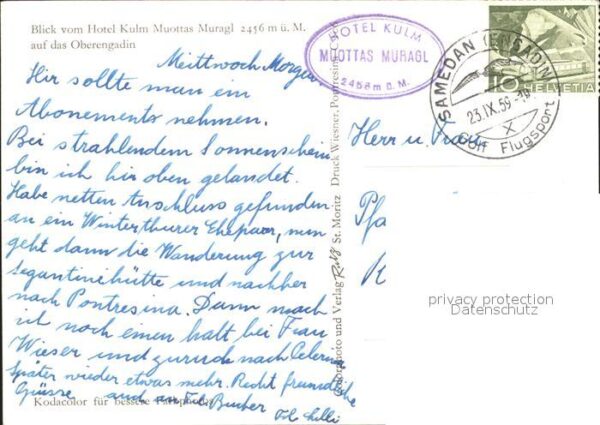 Blick vom Hotel Kulm Muottas Muragl 2456 m ü. M.
auf das Oberengadin
Meittwoch Morgen.
Hir sollte man ein
Abonements nehmen.
Bei strahlendem Sonnenschein
bin ich hir oben gelandet.
Habe netten Anschluss gefunden
an ein Winterthurer Ehepaar, nun
geht dann die Wanderung zur
Segantinihütte und nachher
nach Pontresina. Dann mach
ich noch einen halt bei Frau
Wieser und zurück nach Celerina
Später wieder etwas mehr. Recht freundliche
Grüsse auch an Bucher
Lilli
Kodacolor für bessere
HOTEL KULM
MUOTTAS MURAGL
2456 m ü. M.
SAMEDAN (ENGADIN)
23.IX.59
X
Golf Flugsport
10 HELVETIA
Herr u. Frau
Pfa
K
Colorphoto und Verlag Rutz St. Moritz Druck Wiesner, Pontresina
privacy protection
Datenschutz